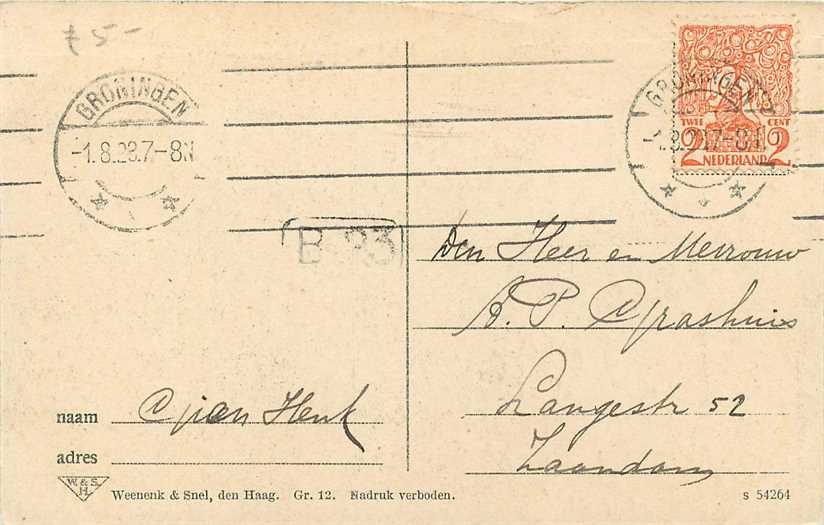 £ 5-
GRONINGEN
-1.8.23.7-8N
GRONINGEN
TWEE CENT
2 2
NEDERLAND
B 23
Den Heer en Mevrouw
A. P. Grashuis
Langestr 52
Zaandam
naam Henk
adres
W. & S.
H.
Weenenk & Snel, den Haag. Gr. 12. Nadruk verboden.
s 54264